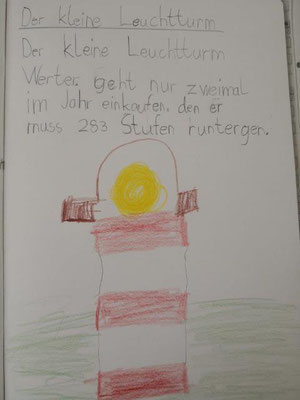 Der kleine Leuchtturm
Der kleine Leuchtturm
Werter. geht nur zweimal
im Jahr einkaufen. den er
muss 283 Stufen runtergen.